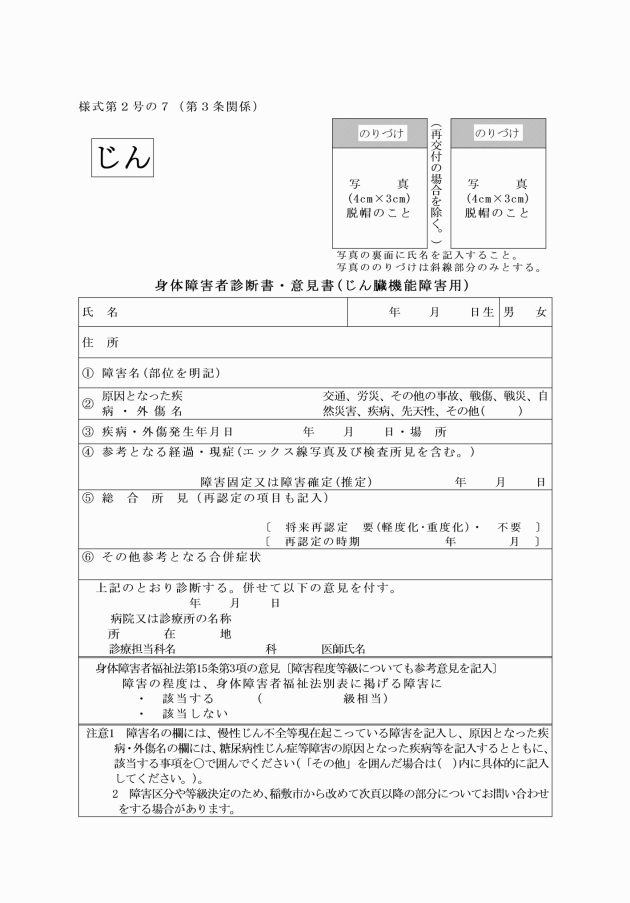 様式第2号の7（第3条関係）
じん
のりづけ
写　真
(4cm×3cm)
脱帽のこと
（再交付の場合を除く。）
のりづけ
写　真
(4cm×3cm)
脱帽のこと
写真の裏面に氏名を記入すること。
写真ののりづけは斜線部分のみとする。
身体障害者診断書・意見書(じん臓機能障害用)
氏　名　　年　月　日生　男　女
住　所
① 障害名(部位を明記)
② 原因となった疾病・外傷名　交通、労災、その他の事故、戦傷、戦災、自
然災害、疾病、先天性、その他(　　)
③ 疾病・外傷発生年月日　　年　月　日・場　所
④ 参考となる経過・現症(エックス線写真及び検査所見を含む。)
障害固定又は障害確定(推定)　　年　月　日
⑤ 総　合　所　見（再認定の項目も記入）
〔　将来再認定　要(軽度化・重度化)・　不要　〕
〔　再認定の時期　　年　　月　〕
⑥ その他参考となる合併症状
上記のとおり診断する。併せて以下の意見を付す。
年　月　日
病院又は診療所の名称
所　在　地
診療担当科名　　科　　医師氏名
身体障害者福祉法第15条第3項の意見〔障害程度等級についても参考意見を記入〕
障害の程度は、身体障害者福祉法別表に掲げる障害に
・　該当する　（　　級相当)
・　該当しない
注意1　障害名の欄には、慢性じん不全等現在起こっている障害を記入し、原因となった疾
病・外傷名の欄には、糖尿病性じん症等障害の原因となった疾病等を記入するとともに、
該当する事項を○で囲んでください(「その他」を囲んだ場合は(　)内に具体的に記入
してください。)。
2　障害区分や等級決定のため、稲敷市から改めて次頁以降の部分についてお問い合わせ
をする場合があります。